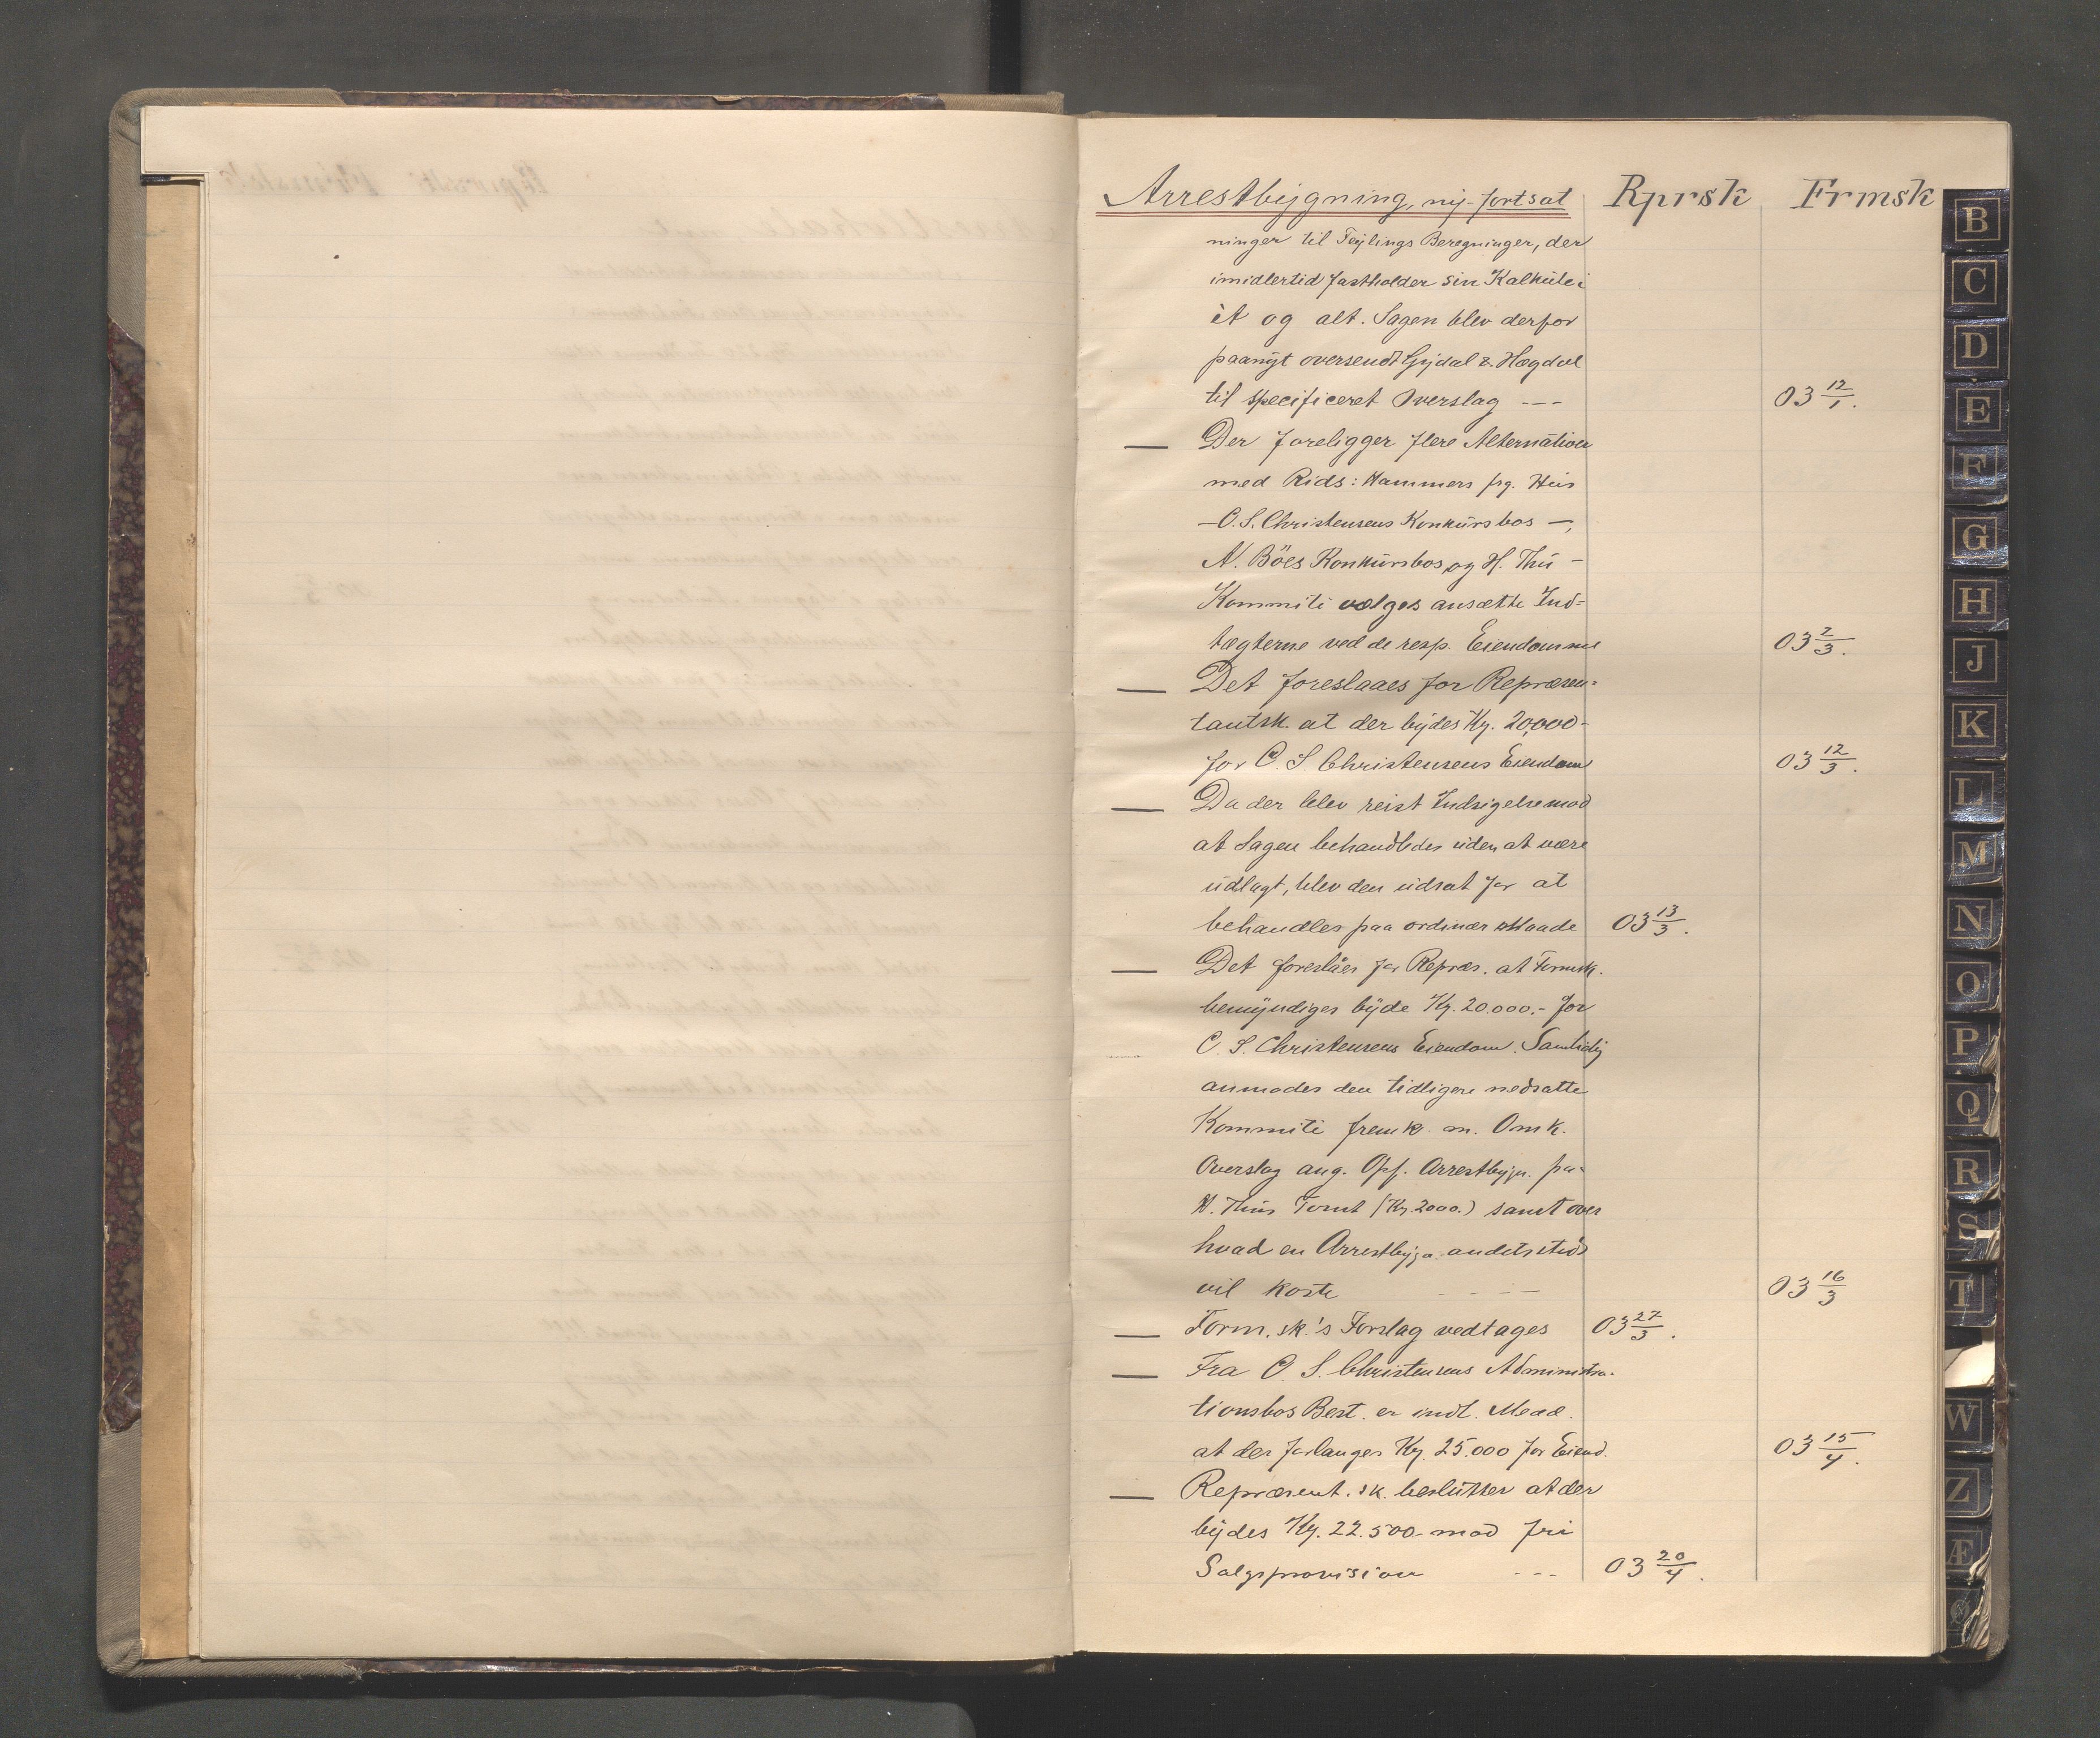 Arrestbygning, ny fortsat Rprsk Frmsk
ninger til Feylings Beregninger, der
imidlertid fastholder sin Kalkule i
èt og alt. Sagen blev derfor
paanyt oversendt Gijdal & Hægdal
til specificeret Overslag --- 03 12/1.
— Der foreligger flere Alternativer
med Rids: Hammers frg. Hus
— O. S. Christensens Konkursbos —,
N. Böes Konkursbos og H. Thu -
Kommiti vælges ansætte Ind=
tægterne ved de resp. Eiendomme 03 2/3.
— Det foreslaaes for Repræsen=
tantsk. at der bydes Kr. 20,000-
for O. S. Christensens Eiendom 03 12/3.
— Da der blev reist Indsigelse mod
at Sagen behandledes uden at være
udlagt, blev den udsat for at
behandles paa ordinær Maade 03 13/3.
— Det foreslåes for Repræs. at Formsk.
bemyndiges byde Kr. 20.000.- for
C. S. Christensens Eiendom. Samtidig
anmodes den tidligere nedsatte
Kommiti fremk. m. Omk.
Overslag ang. Opf. Arrestbygn. paa
H. Thus Tomt (Kr. 2000.) samt over
hvad en Arrestbygn. andetsteds
vil koste ---- 03 16/3
— Form. sk.'s Forslag vedtages 03 27/3.
— Fra O. S. Christensens Administra-
tionsbos Best. er indl. Medd.
at der forlanges Kr. 25.000 for Eiend. 03 15/4.
— Repræsent. sk. beslutter at der
bydes Kr. 22.500- mod fri
Salgsprovision --- 03 20/4.
B
C
D
E
F
G
H
J
K
L
M
N
O
P
Q
R
S
T
W
Z
Æ
Ø